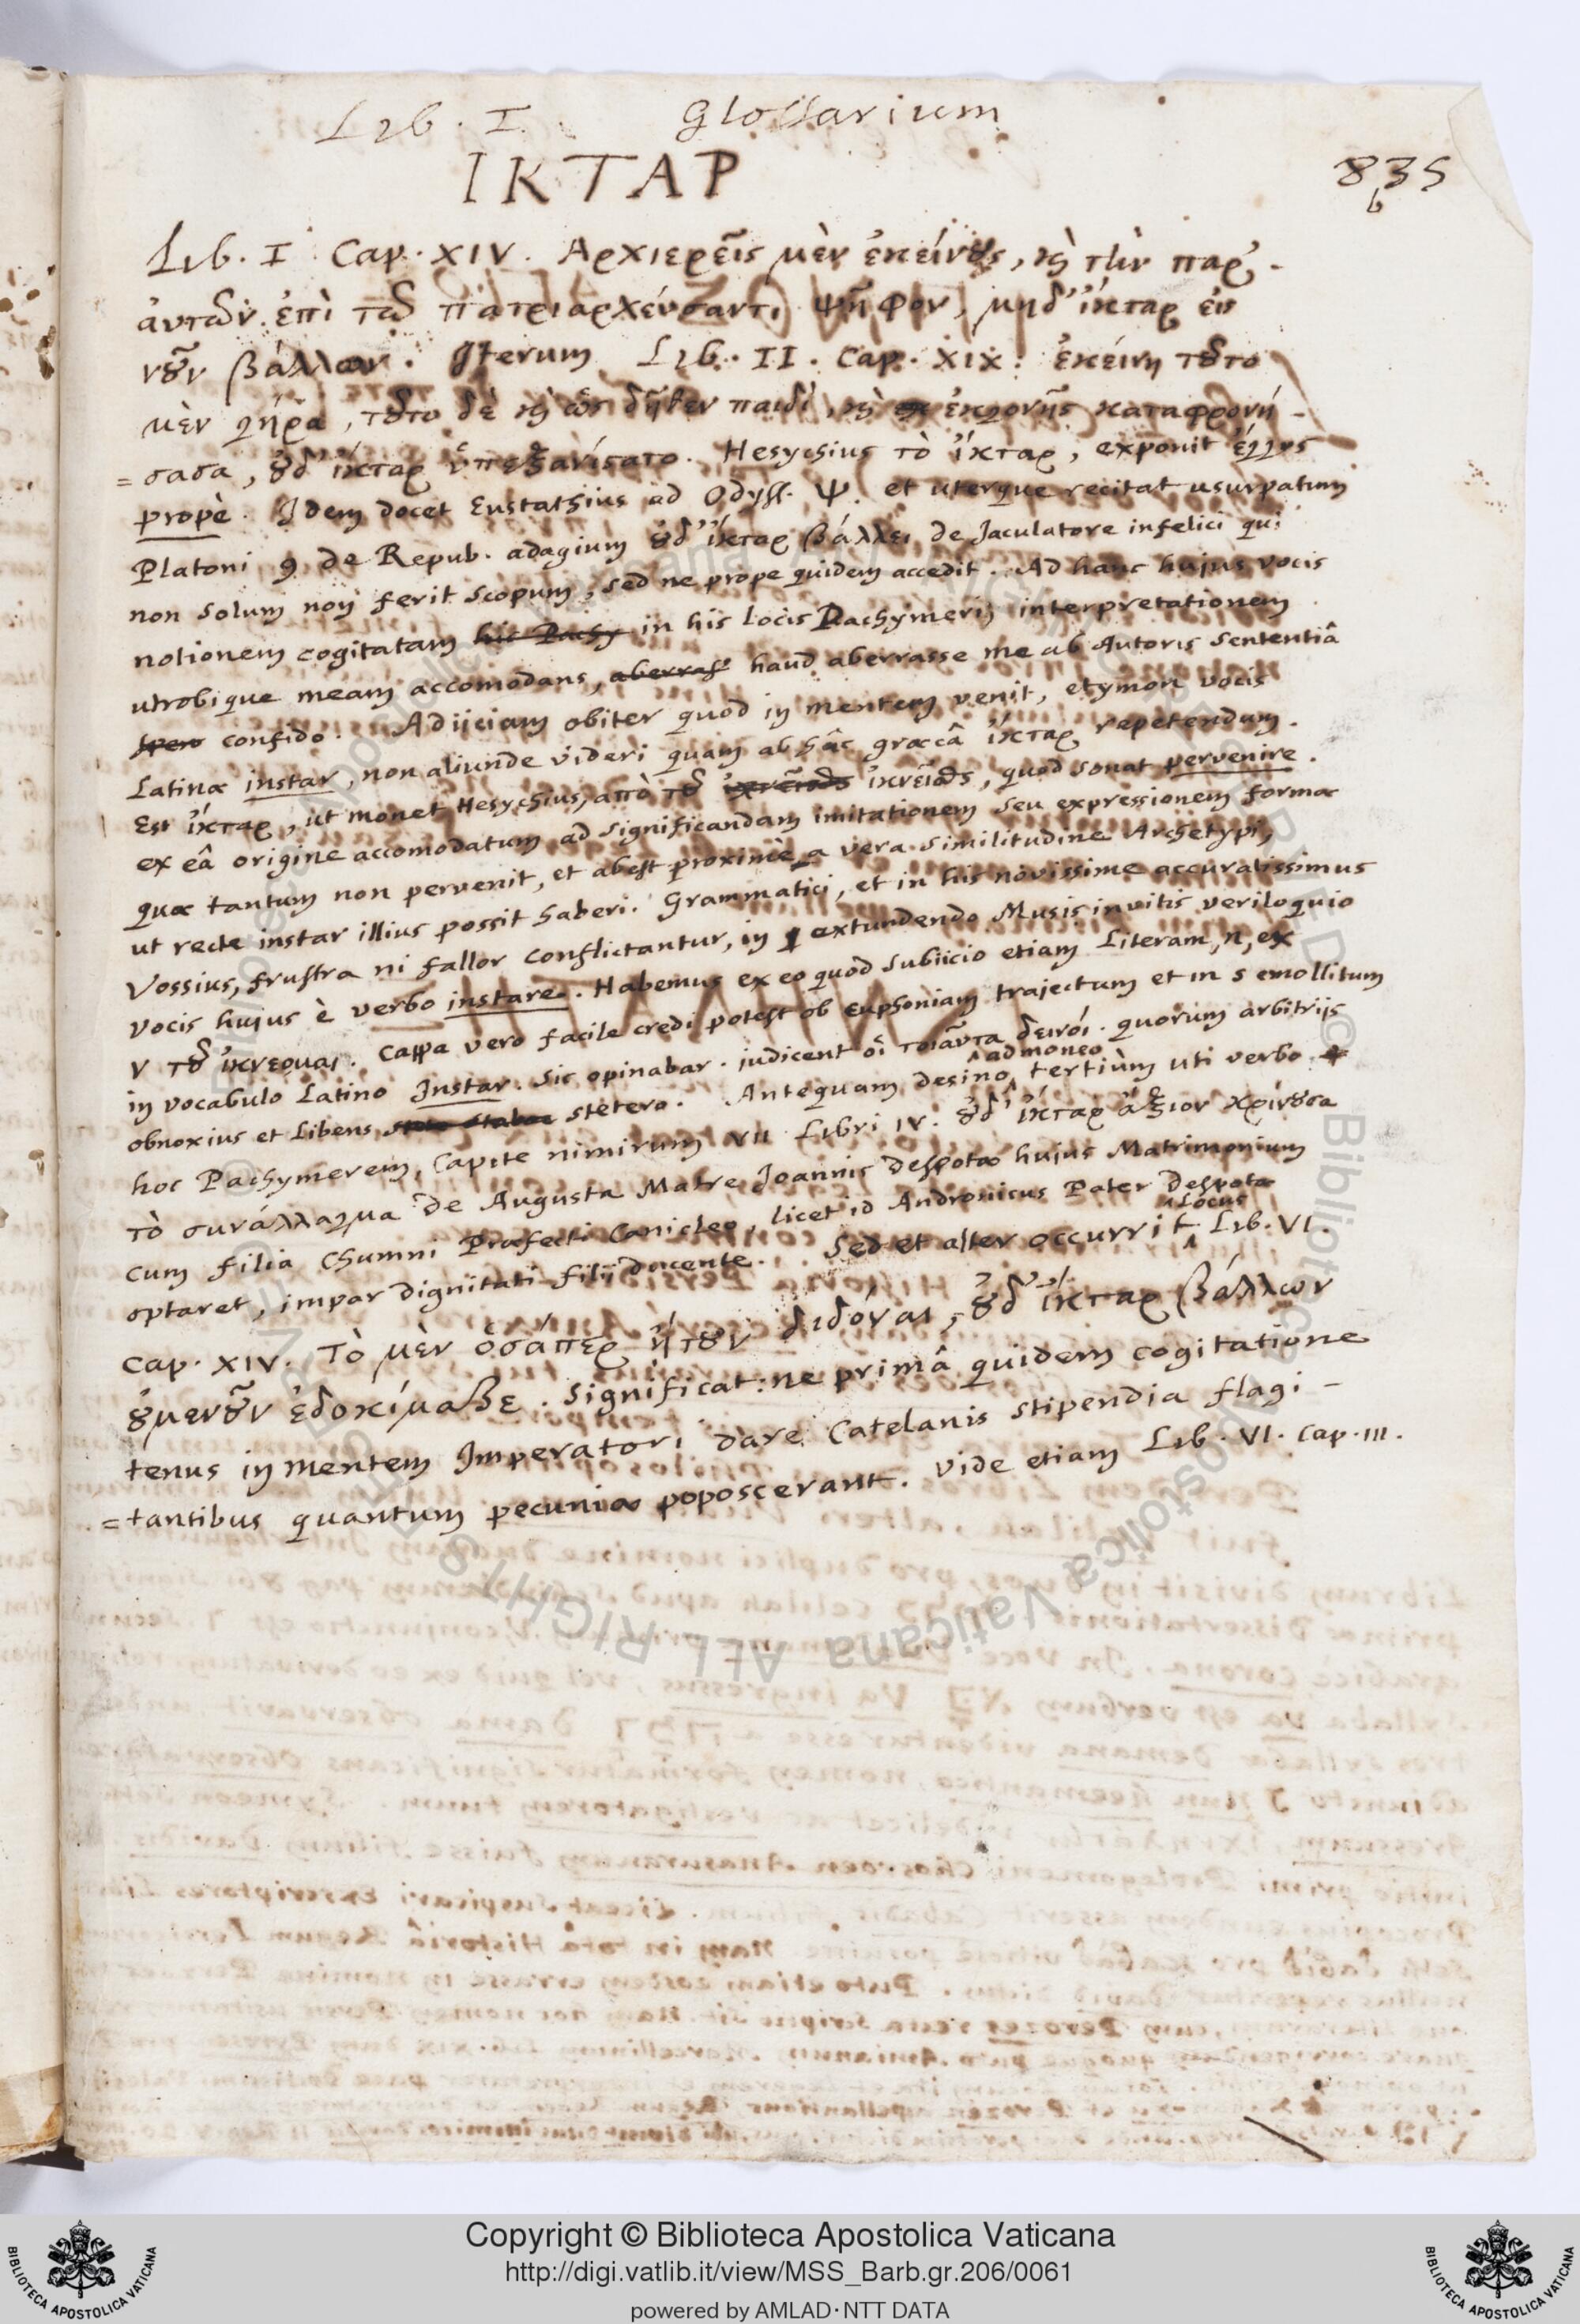 Lib. I. Glossarium
ΙΚΤΑΡ
835
b
Lib. I Cap. XIV. Αρχιερεῖς μὲν ἐκείνους, καὶ τὴν παρ' -
ἀυτῶν ἐπὶ τῶ πατριαρχέυσαντι ψῆφον, μηδ' ἴκταρ εἰς
νοῦν βάλλων. Iterum Lib. II. Cap. XIX: ἐκείνη τοῦτο
μὲν γῆρα, τοῦτο δὲ καὶ ὡς δῆθεν παιδὶ, καὶ ἐκγονῆς καταφρονή -
= σασα, οὐδ' ἴκταρ ὑπεξανίσατο. Hesychius τὸ ἴκταρ, exponit ἐγγυς
propè. Idem docet Eustathius ad Odyss. Ψ. et uterque recitat usurpatum
Platoni 9 de Repub. adagium οὐδ' ἴκταρ βάλλει de Jaculatore infelici qui
non solum non ferit scopum, sed ne prope quidem accedit. Ad hanc hujus vocis
notionem cogitatam his Pachy in his locis Pachymeris interpretationem
utrobique meam accomodans, aberrass haud aberrasse me ab Autoris sententiâ
spero confido. Adijciam obiter quod in mentem venit, etymon vocis
Latinæ instar, non aliunde videri quam ab hâc græcâ ἴκταρ repetendum.
Est ἴκταρ, ut monet Hesychius, απὸ τοῦ ἱκνεῖσθς, quod sonat pervenire.
ex eâ origine accomodatum ad significandam imitationem seu expressionem formæ
quæ tantum non pervenit, et abest proximè a vera similitudine Archetypi,
ut recte instar illius possit haberi. Grammatici, et in his novissime accuratissimus
Vossius, frustra ni fallor conflictantur, in extundendo Musis invitis veriloquio
vocis hujus è verbo instare. Habemus ex eo quod subijcio etiam Literam, n, ex
ν τοῦ ἱκνεομαι. Cappa vero facile credi potest ob euphoniam trajectum et in s emollitum
in vocabulo Latino Instar. Sic opinabar. judicent οἱ τοιαῦτα δεινοί. quorum arbitrijs
obnoxius et Libens stetero. Antequam desino, admoneo tertiùm uti verbo
hoc Pachymerem, Capite nimirum VII Libri IV. οὐδ' ἴκταρ ἄξιον κρίνουσα
τὸ συνάλλαγμα de Augusta Matre Joannis Despotæ hujus Matrimonium
cum filia Chumni Præfecti Canicleo, licet id Andronicus Pater Despotæ
optaret, impar dignitati filij ducente. Sed et alter occurrit Locus Lib. VI.
cap. XIV. Τὸ μὲν ὁσαπερ ἤτουν διδόναι, οὐδ' ἴκταρ βάλλων
ουμενοῦν ἐδοκίμαζε. Significat: ne primâ quidem cogitatione
tenus in mentem Imperatori dare Catelanis stipendia flagi -
= tantibus quantum pecuniæ poposcerant. Vide etiam Lib. VI. Cap. III.
Copyright © Biblioteca Apostolica Vaticana
http://digi.vatlib.it/view/MSS_Barb.gr.206/0061
powered by AMLAD·NTT DATA
BIBLIOTECA APOSTOLICA VATICANA
BIBLIOTECA APOSTOLICA VATICANA